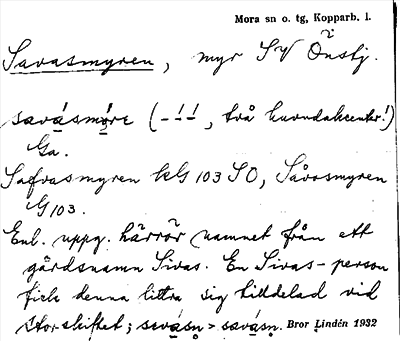 Mora sn o. tg, Kopparb. l.
Savasmyren, myr SV Önsbj.
savásmýrє (-́-́, två huvudakcenter!)
Ga.
Safvasmyren kG 103 SO, Såvasmyren
G 103.
Enl. uppg. härrör namnet från ett
gårdsnamn Sivas. En Sivas-person
fick denna litra sig tilldelad vid
storskiftet; sevásn > savásn. Bror Lindén 1932